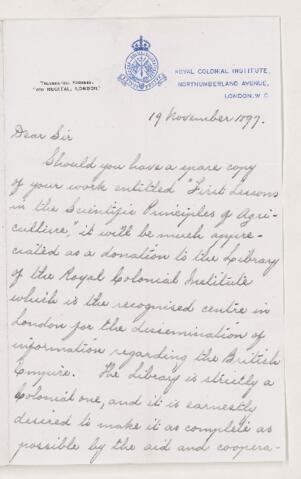 ROYAL COLONIAL INSTITUTE,
NORTHUMBERLAND AVENUE,
LONDON, W.C.
LONDON."
19 November 1897.
Dear Sir
Should you have a spare copy
of your work entitled "First Lessons
in the Scientific Principles of Agri-
culture," it will be much appre-
ciated as a donation to the Library
of the Royal Colonial Institute
which is the recognised centre in
London for the dissemination of
information regarding the British
Empire. The Library is strictly a
Colonial one, and it is earnestly
desired to make it as complete as
possible by the aid and coopera-